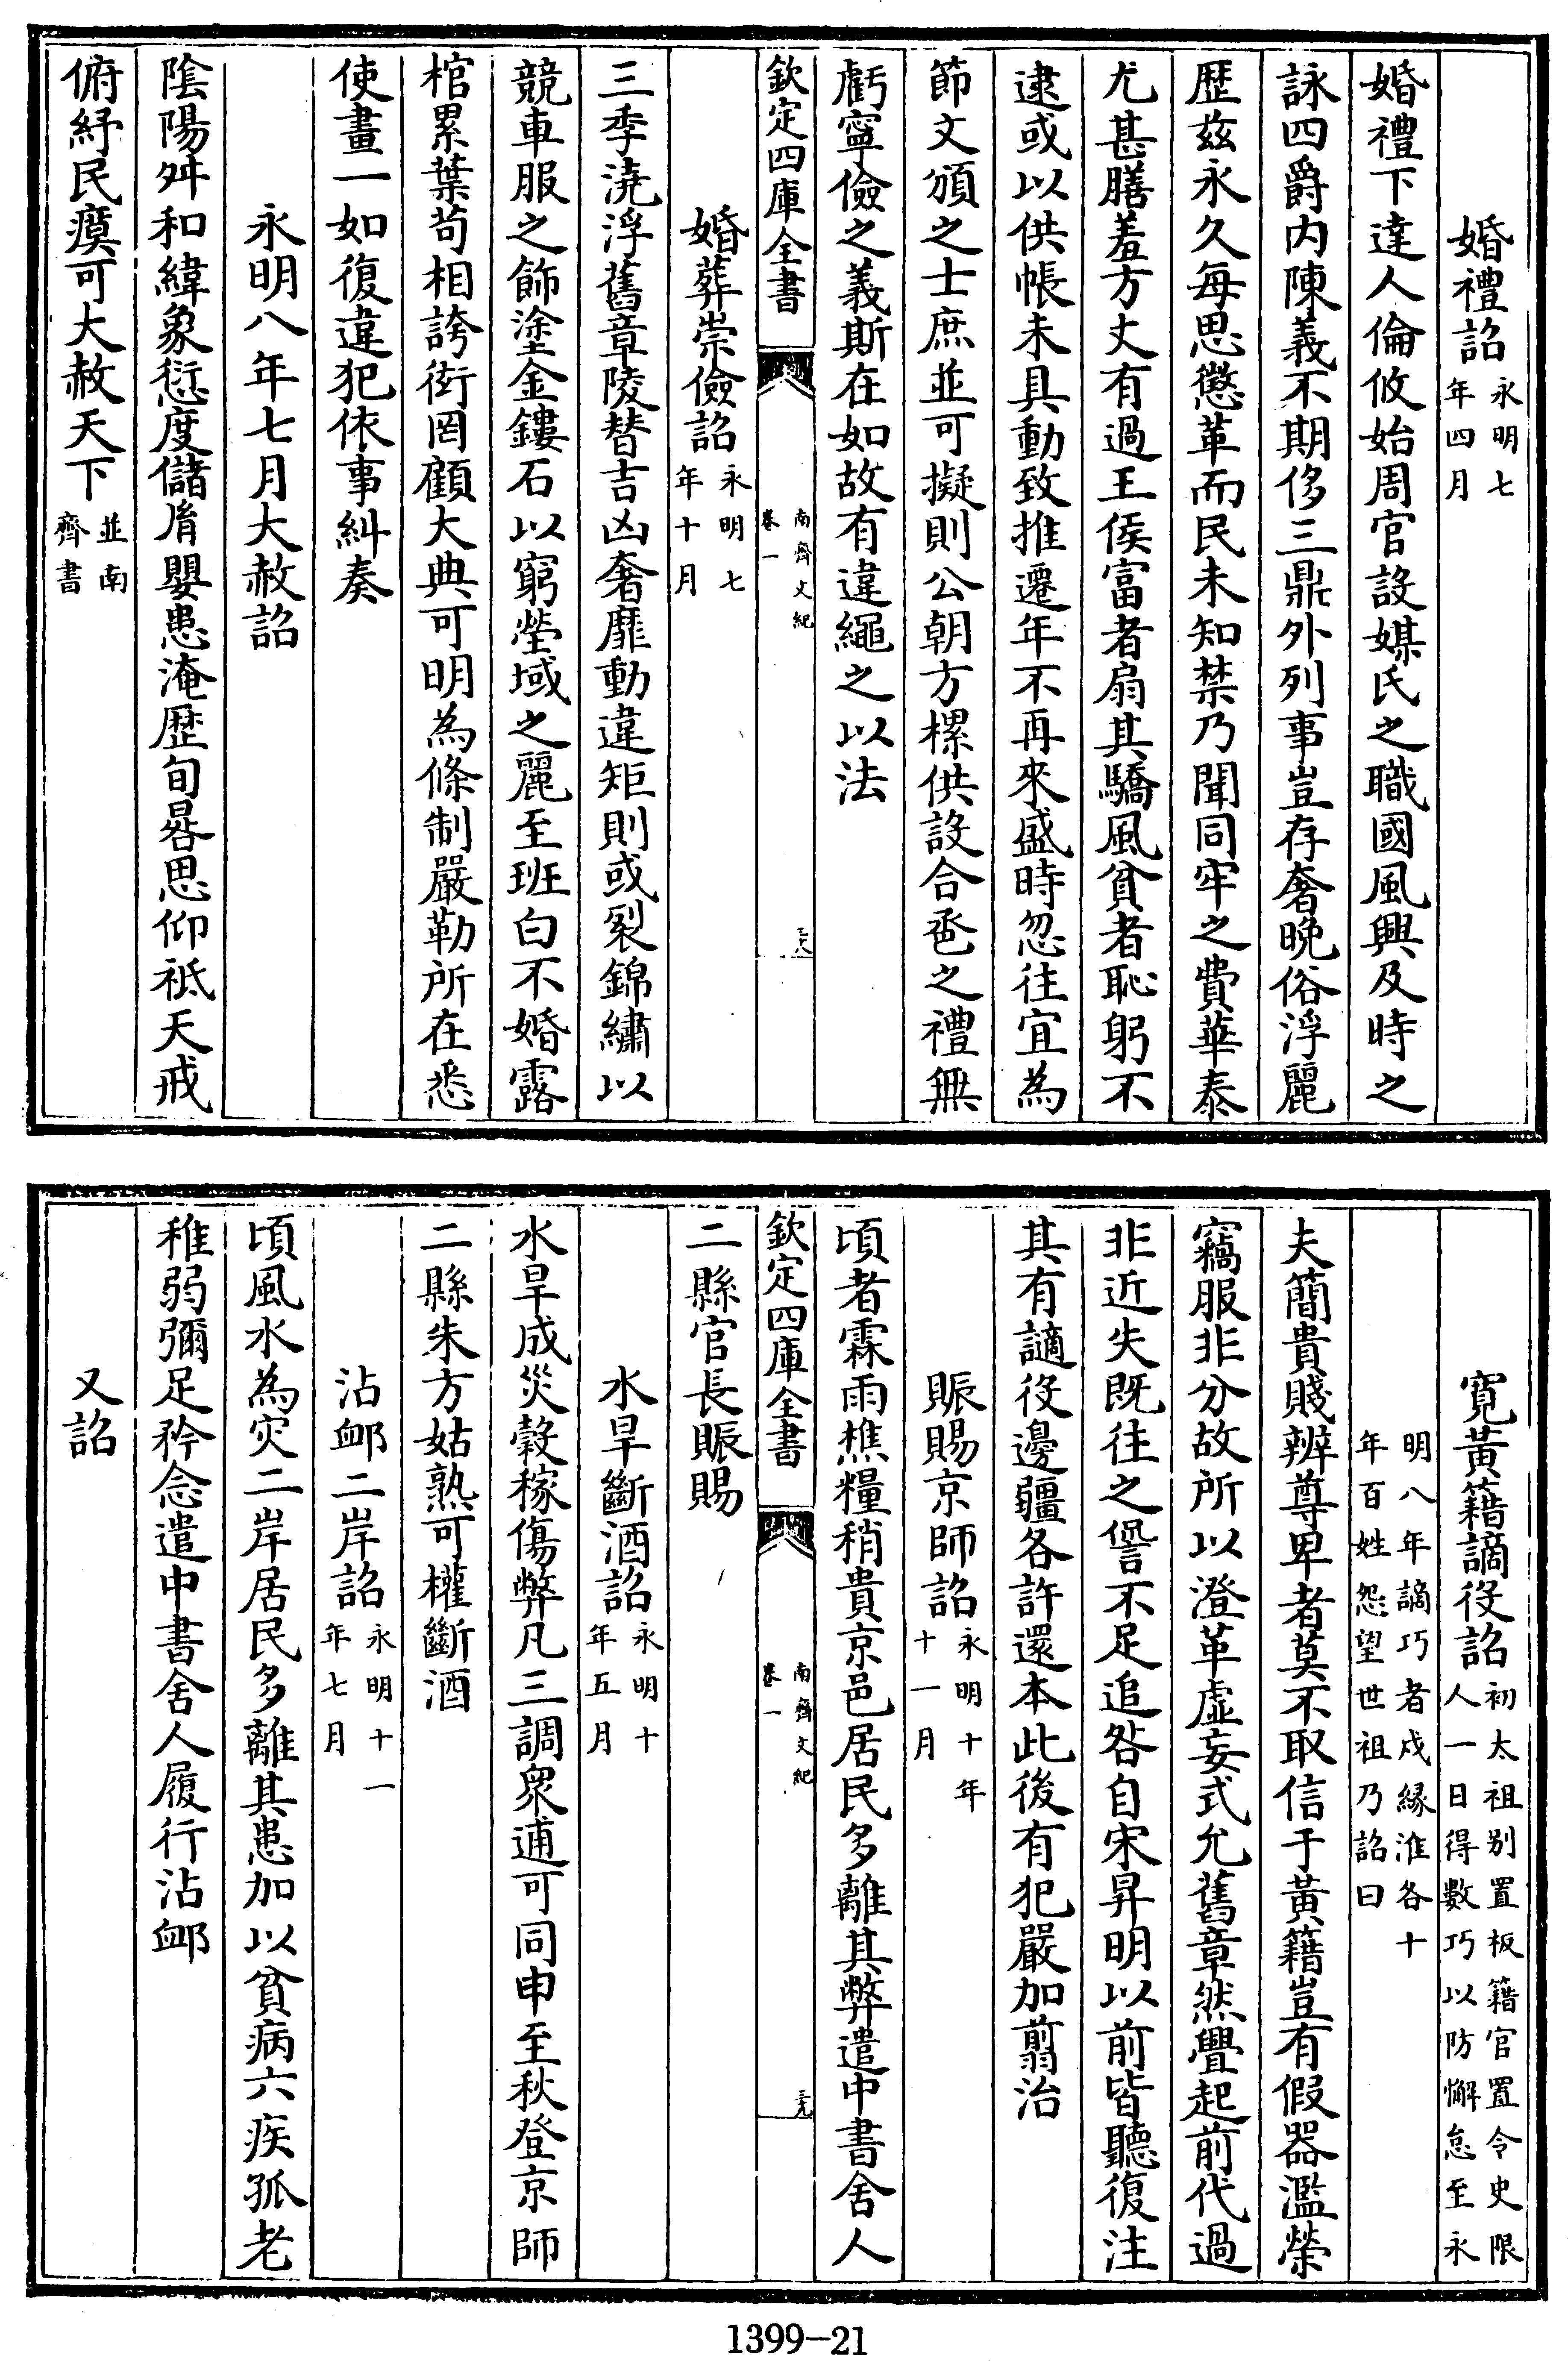 婚禮詔永明七年四月
婚禮下達人倫攸始周官設媒氏之職國風興及時之
詠四爵内陳義不期侈三鼎外列事豈存奢晚俗浮麗
歴兹永久每思懲革而民未知禁乃聞同牢之費華泰
尤甚膳羞方丈有過王侯富者扇其驕風貧者恥躬不
逮或以供帳未具動致推遷年不再來盛時忽往宜為
節文頒之士庶並可擬則公朝方樏供設合卺之禮無
虧寧儉之義斯在如故有違繩之以法
欽定四庫全書
南齊文紀
卷一
三八
婚葬崇儉詔永明七年十月
三季澆浮舊章陵替吉凶奢靡動違矩則或裂錦繡以
競車服之飾塗金鏤石以窮塋域之麗至班白不婚露
棺累葉苟相誇衒罔顧大典可明為條制嚴勒所在悉
使畫一如復違犯依事糾奏
永明八年七月大赦詔
陰陽舛和緯象愆度儲胤嬰患淹歴旬晷思仰祗天戒
俯紓民瘼可大赦天下並南齊書
寛黃籍謫役詔初太祖别置板籍官置令史限人一日得數巧以防懈怠至永
明八年謫巧者戍縁淮各十年百姓怨望世祖乃詔曰
夫簡貴賤辨尊卑者莫不取信于黃籍豈有假器濫榮
竊服非分故所以澄革虛妄式允舊章然釁起前代過
非近失既往之諐不足追咎自宋昇明以前皆聽復注
其有謫役邊疆各許還本此後有犯嚴加翦治
賑賜京師詔永明十年十一月
頃者霖雨樵糧稍貴京邑居民多離其弊遣中書舍人
欽定四庫全書
南齊文紀
卷一
三九
二縣官長賑賜
水旱斷酒詔永明十年五月
水旱成災穀稼傷弊凡三調衆逋可同申至秋登京師
二縣朱方姑熟可權斷酒
沾䘏二岸詔永明十一年七月
頃風水為灾二岸居民多離其患加以貧病六疾孤老
稚弱彌足矜念遣中書舍人履行沾䘏
又詔
1399-21